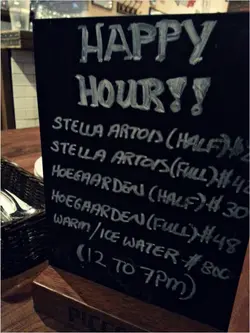 HAPPY
HOUR!!
STELLA ARTOIS (HALF)
STELLA ARTOIS (FULL) #4
HOEGAARDEN (HALF) #30
HOEGAARDEN (FULL) #48
WARM/ICE WATER #
(12 TO 7PM)